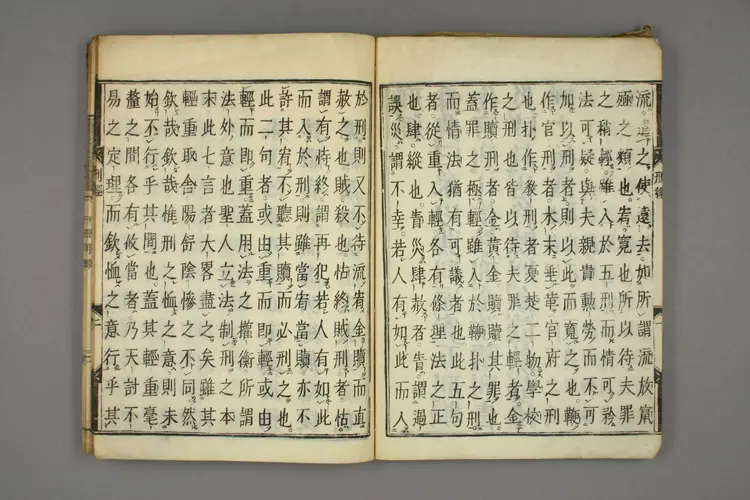 流遣之使遠去如所謂流放竄
殛之類也宥寬也所以待夫罪
之稍輕雖入於五刑而情可矜
法可疑與夫親貴勳勞而不可
加以刑者則以此而寬之也鞭
作官刑者木末垂革官府之刑
也扑作教刑者夏楚二物學校
之刑也皆以待夫罪之輕者金
作贖刑者金黃金贖贖其罪也
蓋罪之極輕雖入於鞭扑之刑
而情法猶有可議者也此五句
者從重入輕各有條理法之正
也肆縱也眚災肆赦者眚謂過
誤災謂不幸若人有如此而入
於刑則又不待流宥金贖而直
赦之也賊殺也怙終賊刑者怙
謂有恃終謂再犯若人有如此
而入於刑則雖當宥當贖亦不
許其宥不聽其贖而必刑之也
此二句者或由重而即輕或由
輕而即重蓋用法之權衡所謂
法外意也聖人立法制刑之本
末此七言者大畧盡之矣雖其
輕重取舍陽舒陰慘之不同然
欽哉欽哉惟刑之恤之意則未
始不行乎其間也蓋其輕重毫
釐之間各有攸當者乃天討不
易之定理而欽恤之意行乎其